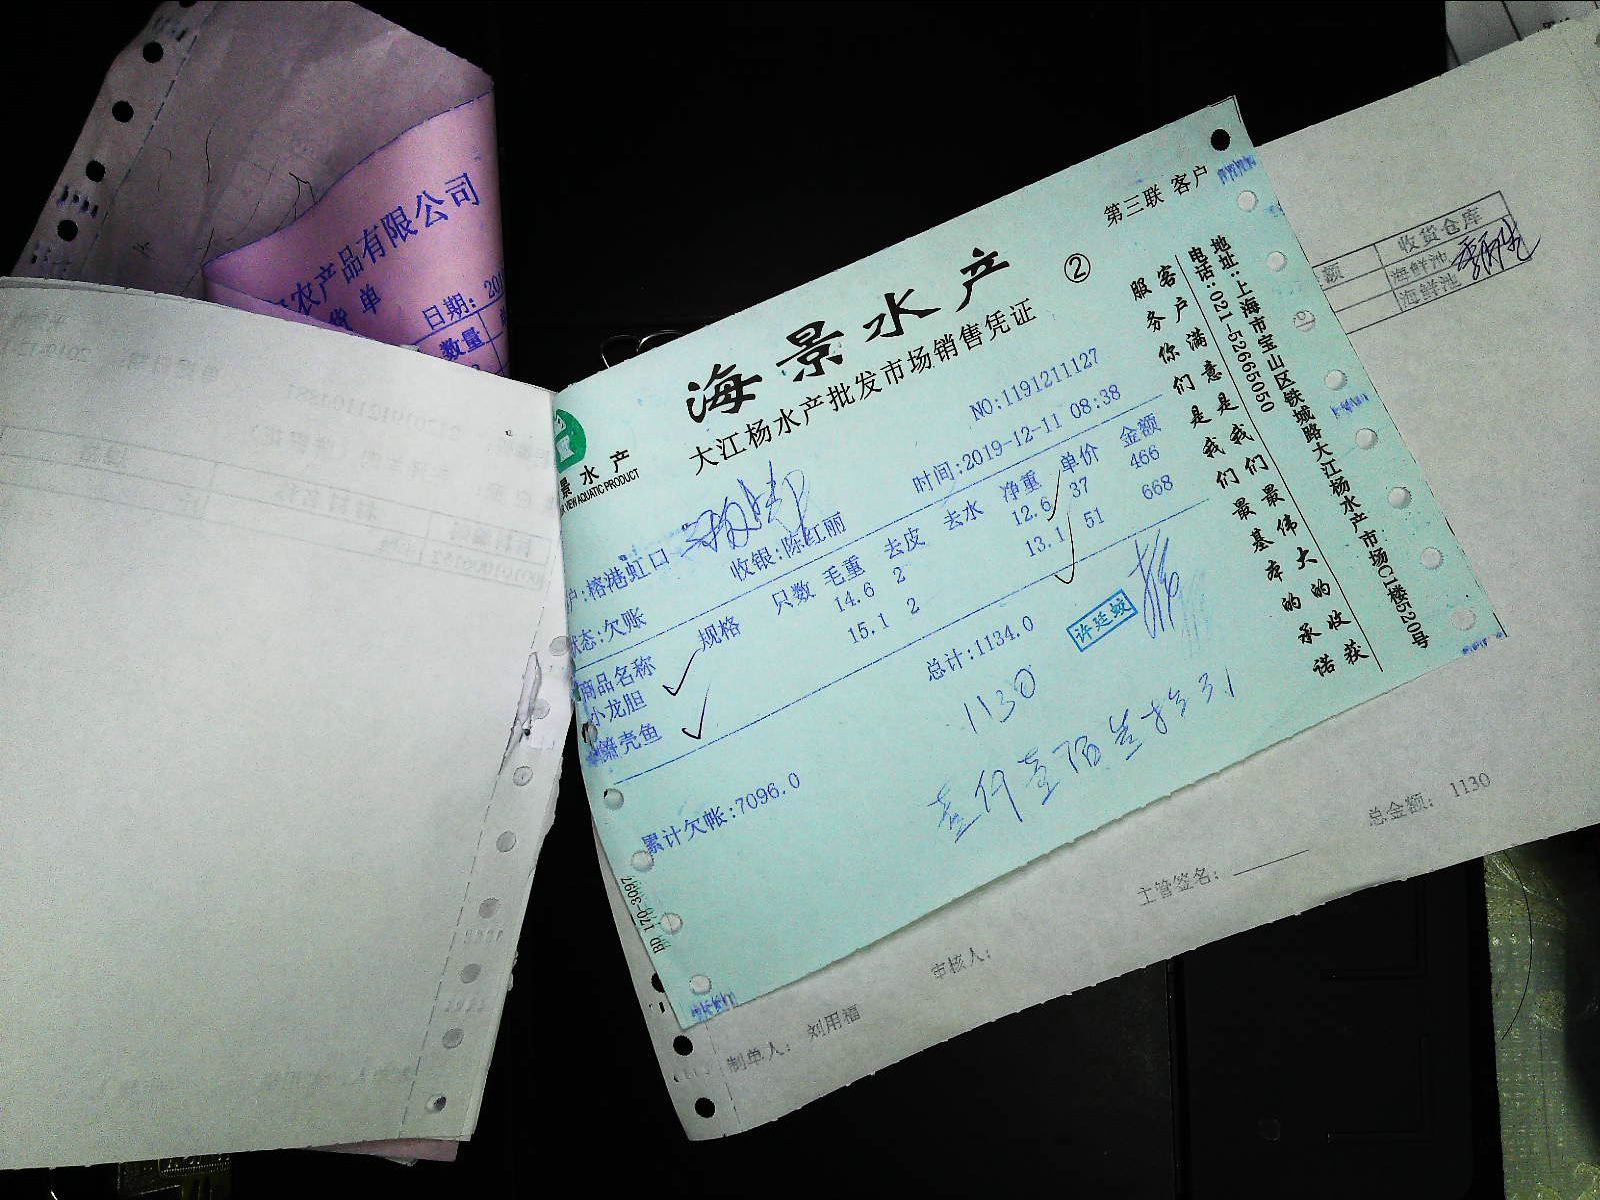 农产品有限公司
货单
日期: 201
数量
第三联 客户
海景水产
②
大江杨水产批发市场销售凭证
景水产
VIEW AQUATIC PRODUCT
NO:1191211127
户:榕港虹口
收银:陈红丽
时间:2019-12-11 08:38
状态:欠账
商品名称 规格 只数 毛重 去皮 去水 净重 单价 金额
小龙胆 14.6 2 12.6 37 466
笋壳鱼 15.1 2 13.1 51 668
总计:1134.0
许廷蛟
1130
壹仟壹佰叁拾
累计欠帐:7096.0
BD 170-3097
地址:上海市宝山区铁城路大江杨水产市场C1楼520号
电话:021-52665050
客户满意是我们最伟大的收获
服务你们是我们最基本的承诺
额 收货仓库
海鲜池
海鲜池
总金额: 1130
主管签名:
审核人:
制单人: 刘用福